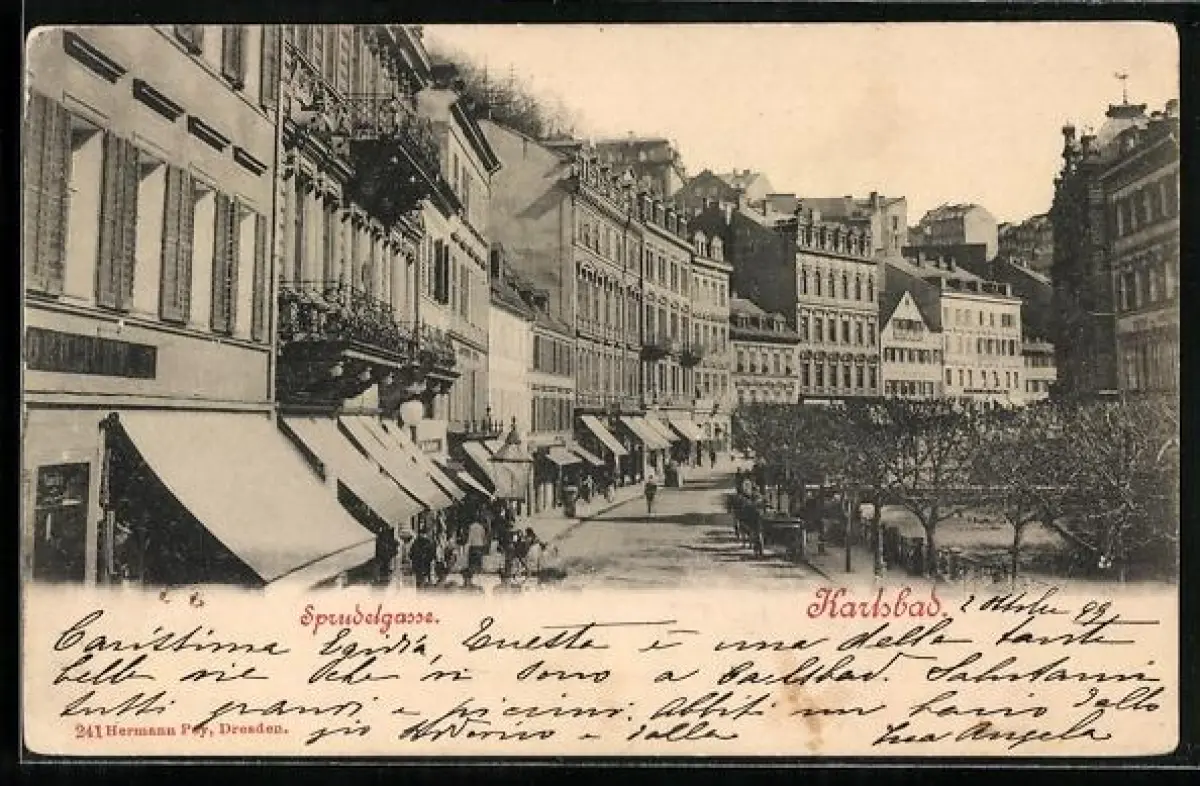 Sprudelgasse.
Karlsbad. 2 Ottobre 99
Carissima Egidia, Questa è una delle tante
belle vie che vi sono a Carlsbad. Salutami
tutti grandi e piccini. Abbiti un bacio dallo
241 Hermann Poy, Dresden.
zio Adorno e dalla tua Angela